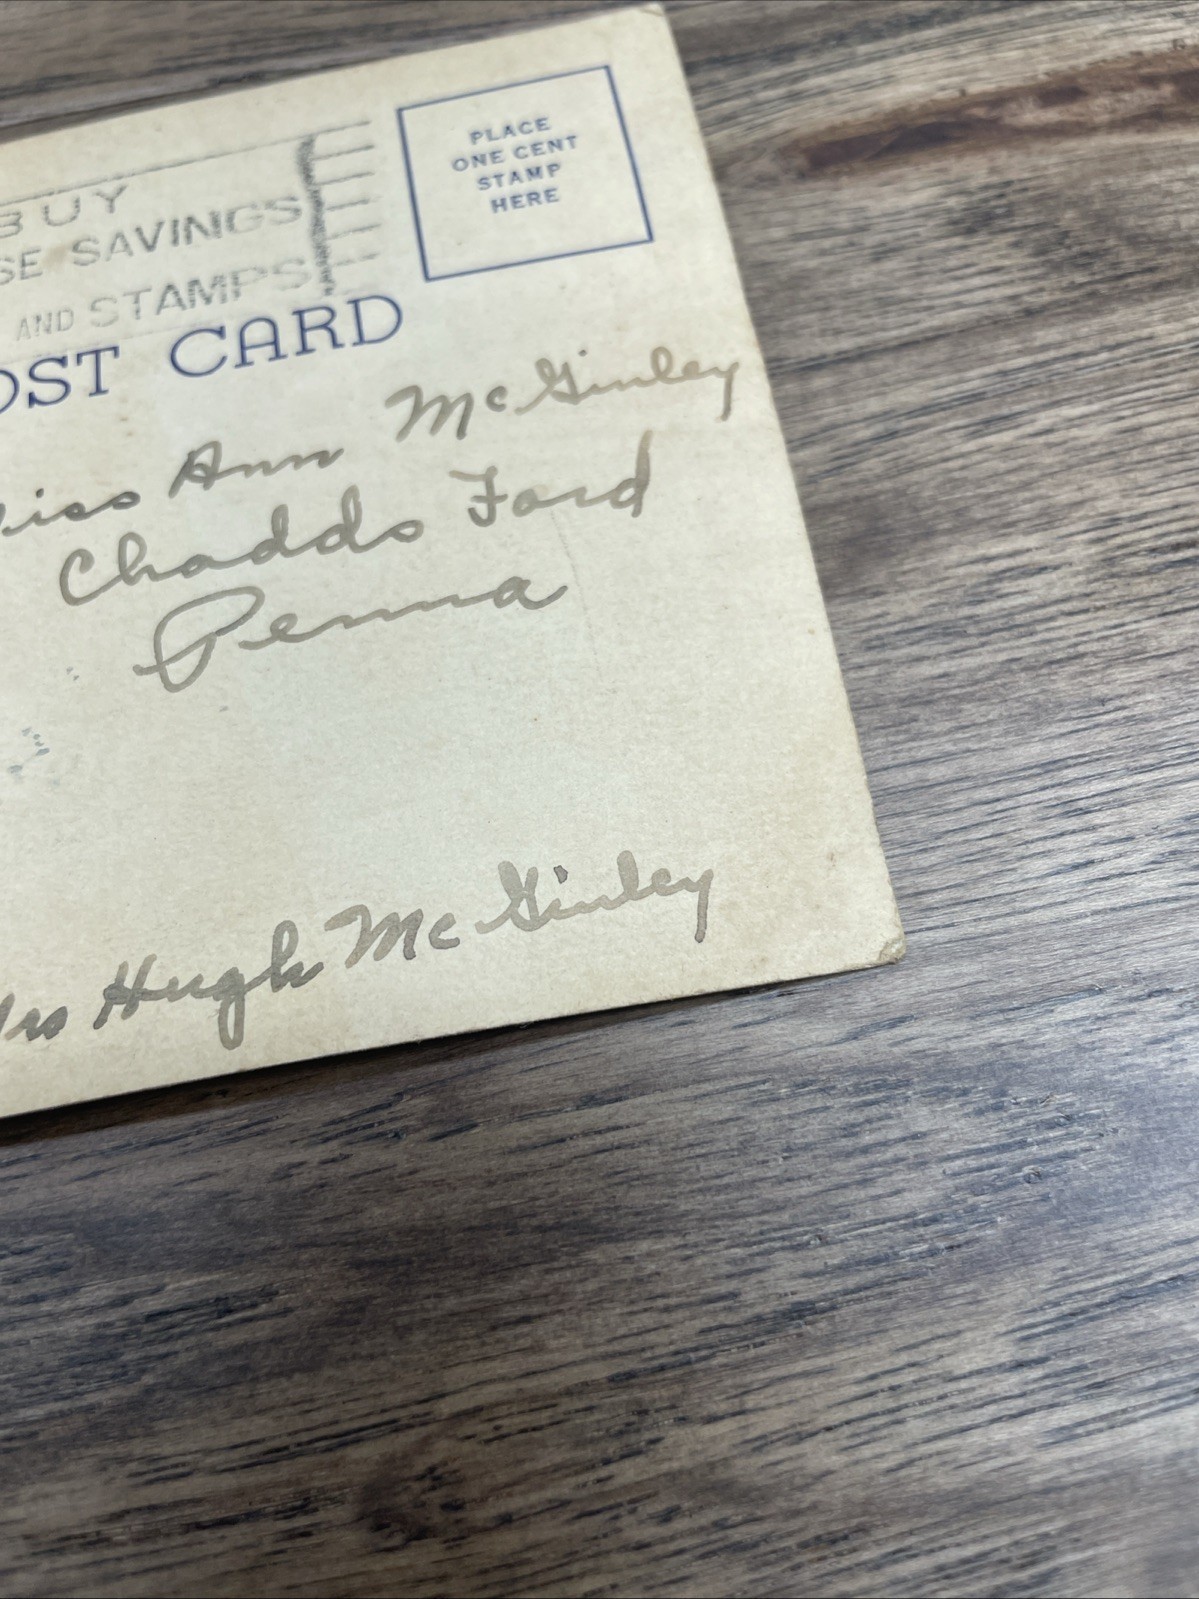 PLACE
ONE CENT
STAMP
HERE
BUY
SE SAVINGS
AND STAMPS
OST CARD
iss Ann McGinley
Chadds Ford
Penna
rs Hugh McGinley